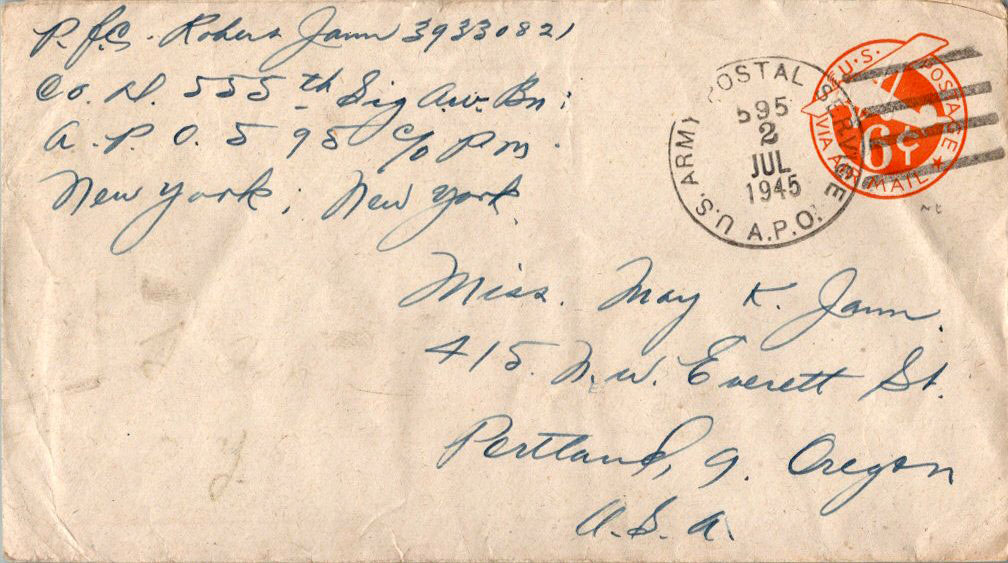 P.f.C. Robert Jann 39330821
Co. D. 555th Sig A.W. Bn;
A. P. O. 595 c/o P.M.
New York; New York.
U.S. POSTAGE
VIA AIR MAIL
6¢
U.S. ARMY POSTAL SERVICE
A.P.O.
595
2
JUL
1945
Miss. May K. Jann.
415. N.W. Everett St.
Portland, 9. Oregon
U.S.A.